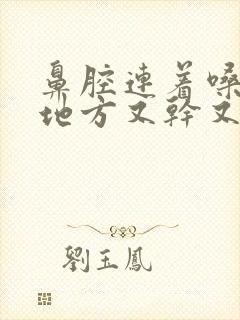 鼻腔連着嗓
地方又幹又
劉玉鳳